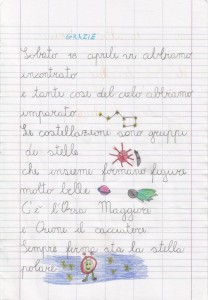 GRAZIE
Sabato 18 aprile vi abbiamo
incontrato
e tante cose del cielo abbiamo
imparato.
Le costellazioni sono gruppi
di stelle
che insieme formano figure
molto belle
C'è l'Orsa Maggiore
e Orione il cacciatore
Sempre ferma sta la stella
polare